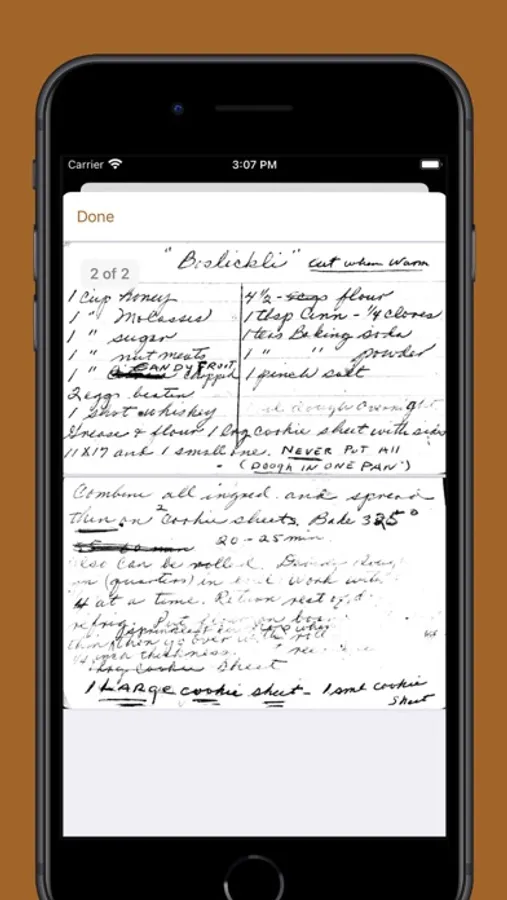 Carrier 3:07 PM
Done
"Bislickli" cut when warm
2 of 2
1 cup honey
1 " Molasses
1 " sugar
1 " nut meats
1 " CANDY FRUIT chopped
2 eggs beaten
1 shot whiskey
4 1/2 - flour
1 tbsp Cinn - 1/4 cloves
1 teas Baking soda
1 " " powder
1 pinch salt
dough overnight
Grease & flour 1 lrg cookie sheet with sides
11X17 and 1 small one. NEVER PUT All
(DOUGH IN ONE PAN')
Combine all ingred. and spread
thin on 2 cookie sheets. Bake 325°
20 - 25 min.
also can be rolled. Divide dough
(quarters) in work with
1/4 at a time. Return rest of
refrig. Put flour on
then go over with roll
1/4 inch thickness.
Cookie Sheet
1 LARGE cookie sheet - 1 sml cookie
sheet